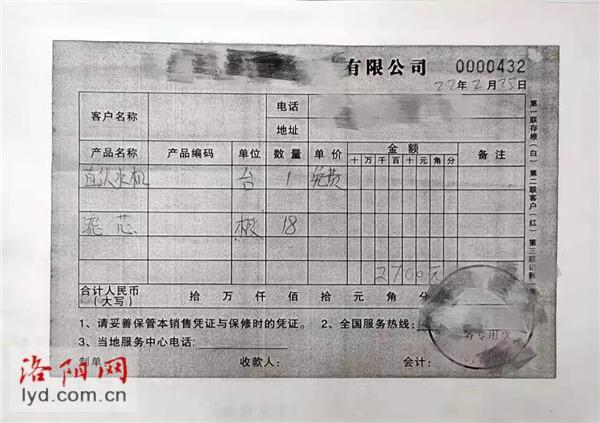 有限公司 0000432
22年2月25日
客户名称 电话
地址
产品名称 产品编码 单位 数量 单价 金额 备注
十 万 千 百 十 元 角 分
直饮水机 台 1 免费
滤芯 根 18
2700元
合计人民币(大写) 拾 万 仟 佰 拾 元 角 分
1、请妥善保管本销售凭证与保修时的凭证。 2、全国服务热线:
3、当地服务中心电话:
制单 收款人: 会计:
第一联存根(白) 第二联客户(红) 第三联记账
洛阳网
lyd.com.cn